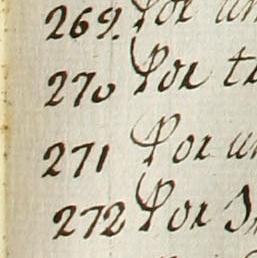 269. Por un
270 Por tr
271 Por un
272 Por